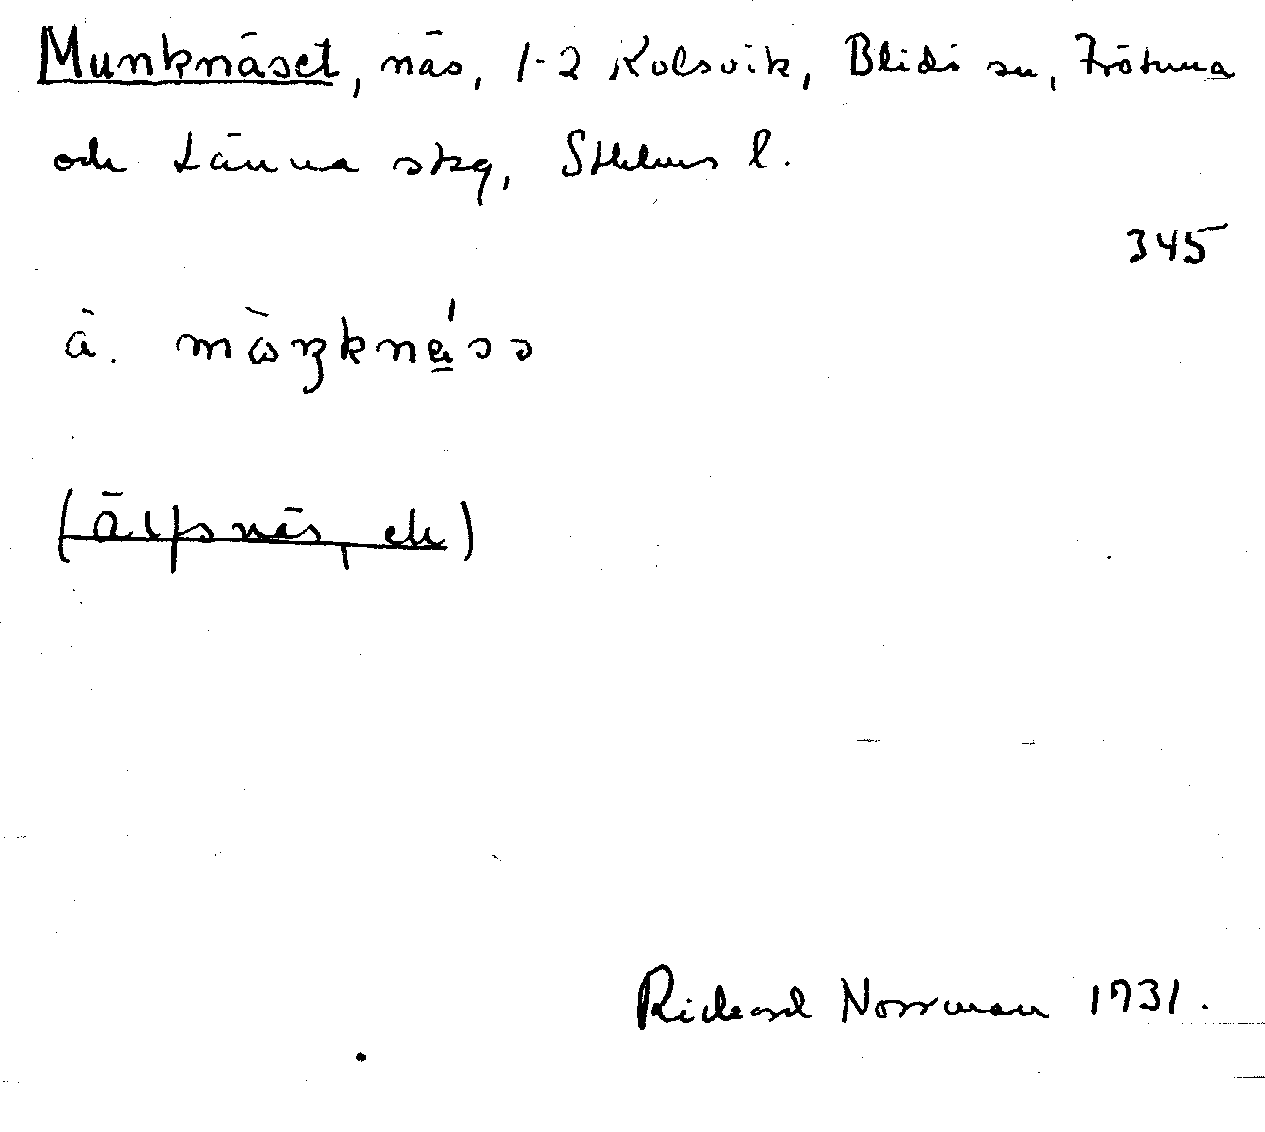 Munknäset, näs, 1-2 Kolsvik, Blidö sn, Frötuna
och Länna skg, Sthlms l.
345
å. mo̊ŋknäss
(Älpsnäs, ek)
Rickard Norrman 1931.